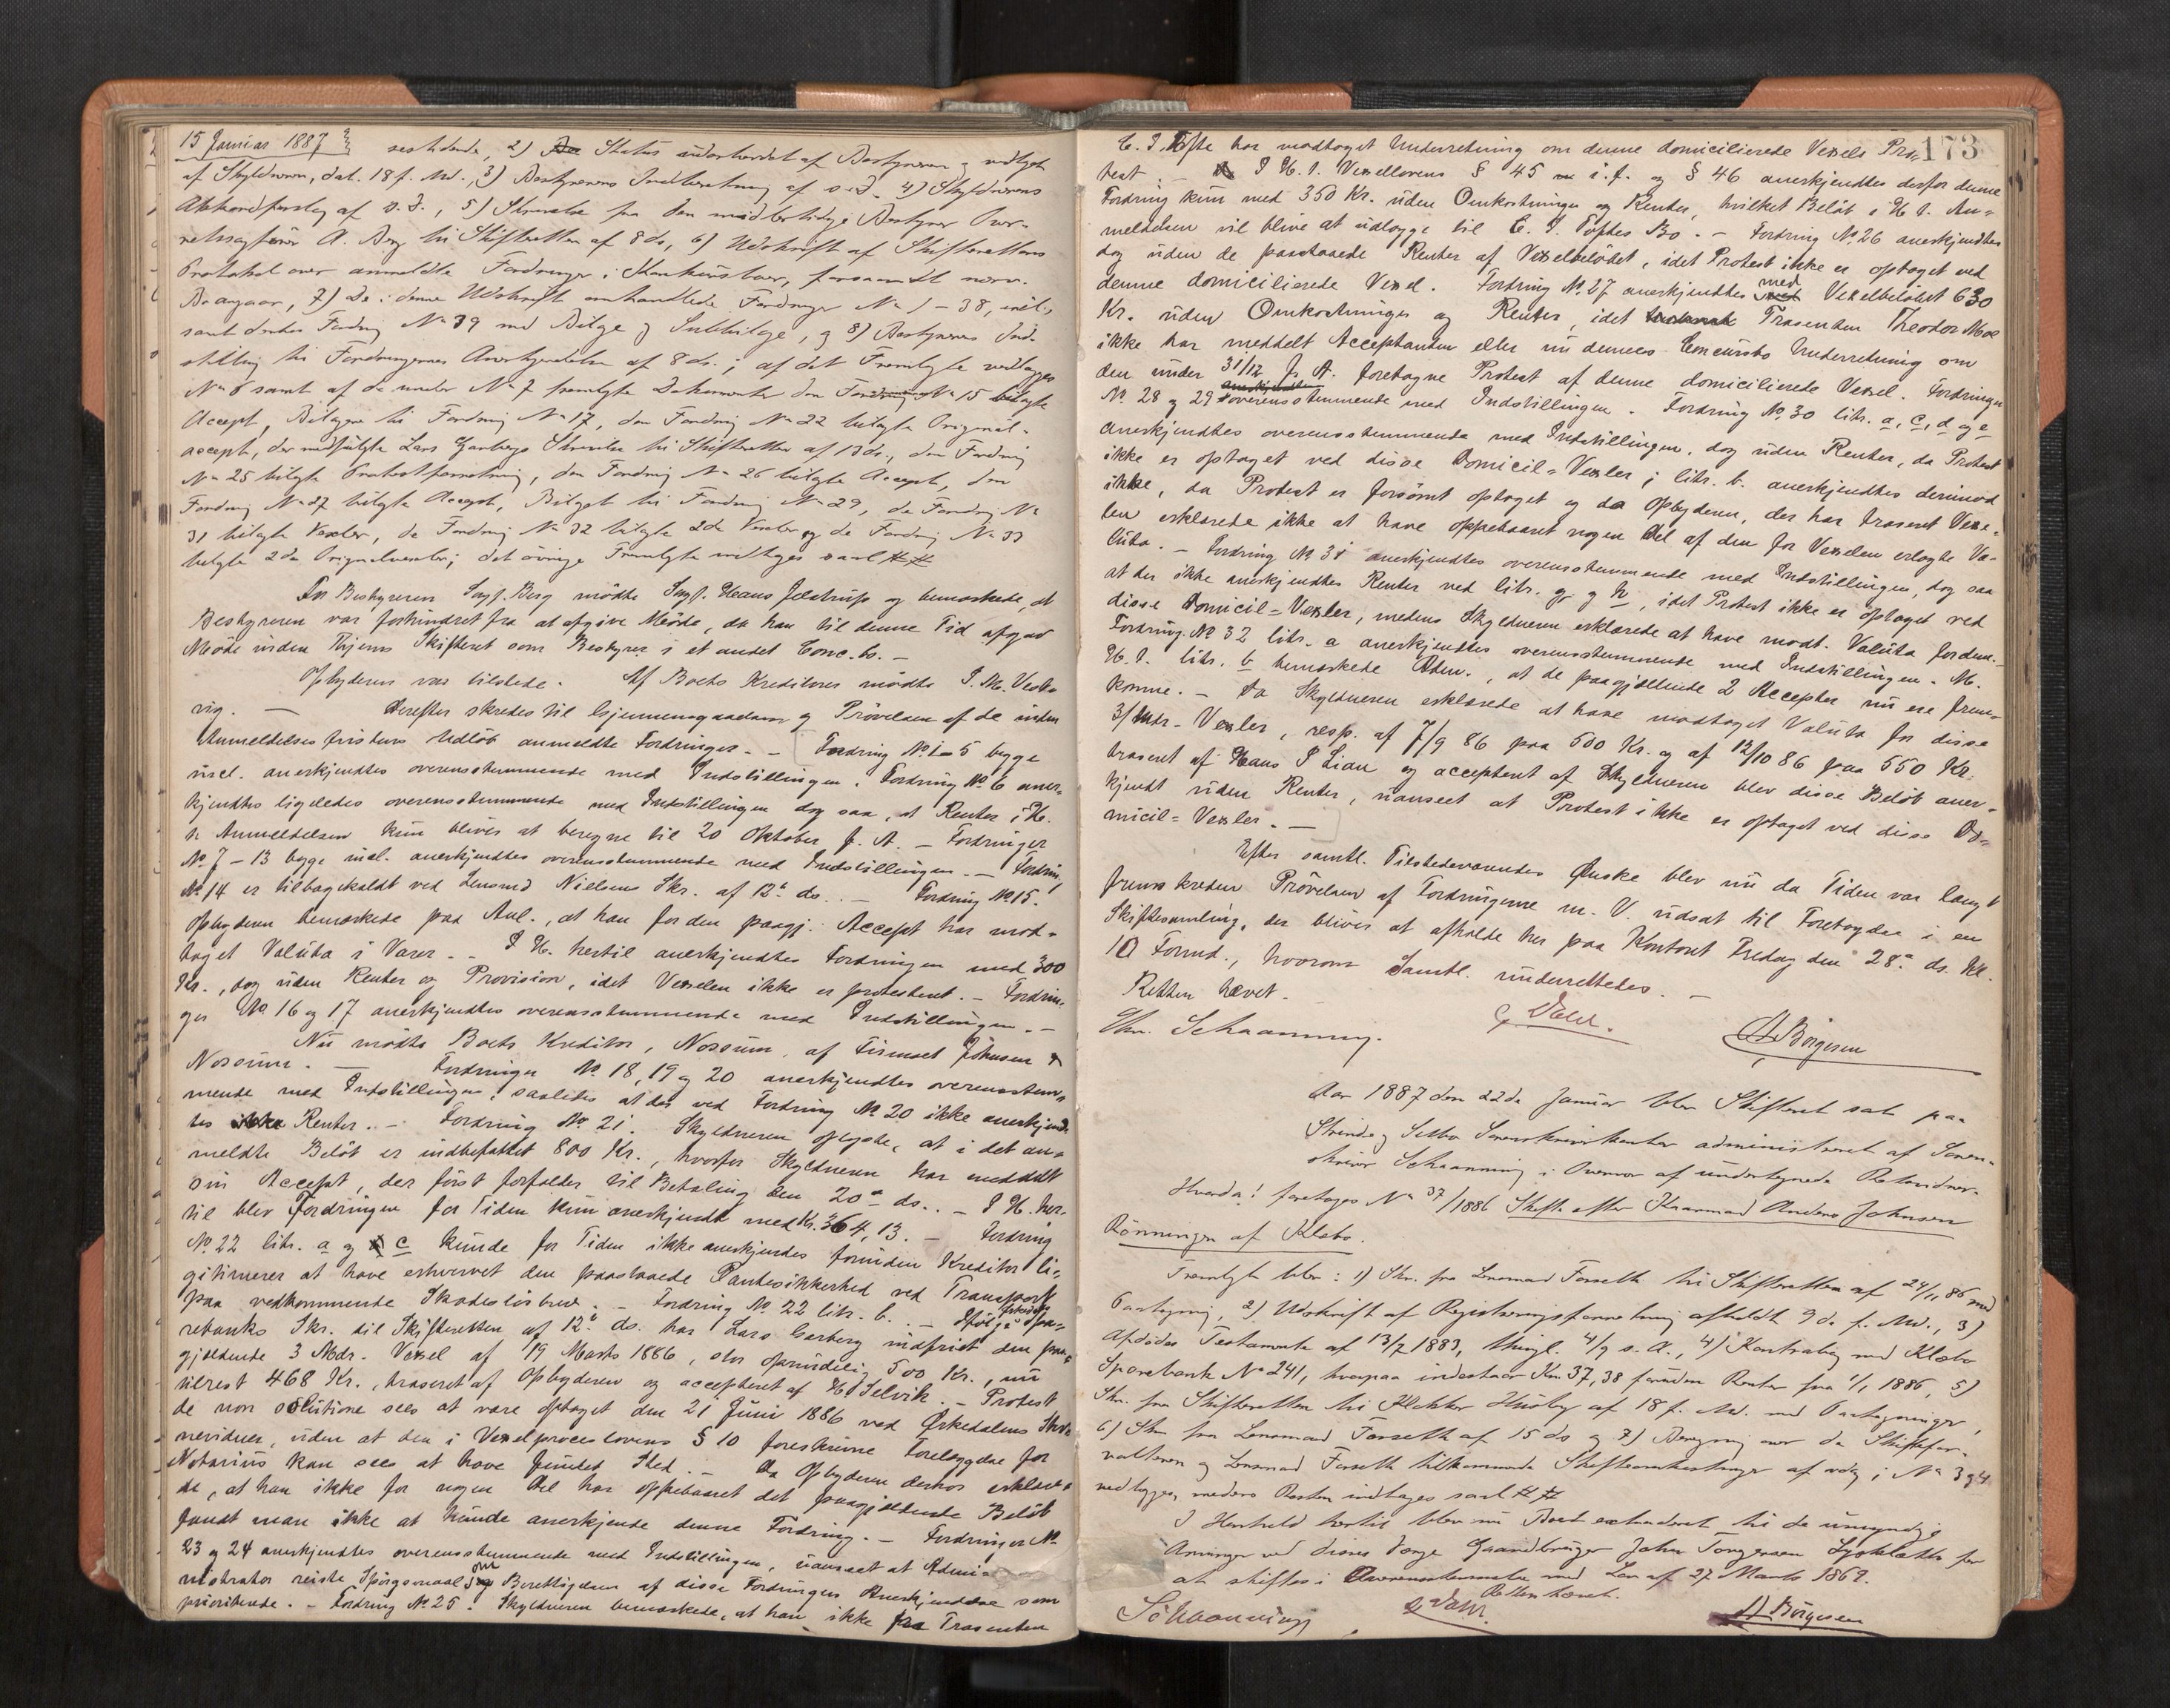 15 Januar 1887
restidende, 2) Status udarbeidet af Bestyreren og vedtaget
af Skyldneren, dat. 18 f. Md., 3) Bestyrerens Indberetning af s. D. 4) Skyldnerens
Akkordforslag af s. D., 5) Skrivelse fra den midlertidige Bestyrer Over-
retssagfører A. Berg til Skifteretten af 8 ds, 6) Udskrift af Skifterettens
Protokol over anmeldte Fordringer i Konkursboer, forsaavidt nærv.
Bo angaar, 7) De i denne Udskrift omhandlede Fordringer No 1 – 38, incl.,
samt desuden Fordring No 39 med Bilage og Subbilage, og 8) Bestyrerens Ind-
stilling til Fordringernes Anerkjendelse af 8 ds.; af det Fremlagte vedlægges
No 6 samt af de under No 7 fremlagte Dokumenter den Fordring No 15 bilagte
Accept, Bilagene til Fordring No 17, den Fordring No 22 bilagte Original-
accept, der medfulgte Lars Garbergs Skrivelse til Skifteretten af 12 ds., den Fordring
No 25 bilagte Protestforretning, den Fordring No 26 bilagte Accept, den
Fordring No 27 bilagte Accept, Bilaget til Fordring No 29, de Fordring No
31 bilagte Vexler, de Fordring No 32 bilagte 2de Vexler og de Fordring No 33
bilagte 2de Originalvexler; det øvrige Fremlagte indtages saal.
For Bestyreren Sagf. Berg mødte Sagf. Hans Jelstrup og bemærkede, at
Bestyreren var forhindret fra at afgive Møde, da han til denne Tid afgav
Møde inden Hjems Skifteret som Bestyrer i et andet Conc.bo. –
Opbyderen var tilstede. Af Boets Kreditorer mødte P. M. Vestvig
– Derefter skredes til Gjennemgaaelsen og Prøvelsen af de inden
Anmeldelsesfristens Udløb anmeldte Fordringer. – Fordring No 1 – 5 begge
incl. anerkjendtes overensstemmende med Indstillingen. Fordring No 6 aner-
kjendtes ligeledes overensstemmende med Indstillingen dog saa, at Renter i H.
t. Anmeldelsen kun bliver at beregne til 20 Oktober f. A. – Fordringer
No 7 – 13 begge incl. anerkjendtes overensstemmende med Indstillingen. – Fordring
No 14 er tilbagekaldt ved Lensmd Nielsens Skr. af 12te ds. – Fordring No 15.
Opbyderen bemærkede paa Anl., at han for den paagj. Accept har mod-
taget Valuta i Varer. – I H. hertil anerkjendtes Fordringen med 300
Kr., dog uden Renter og Provision, idet Vexelen ikke er protesteret. – Fordrin-
ger No 16 og 17 anerkjendtes overensstemmende med Indstillingen. –
Nu mødte Boets Kreditor, Nossum, af Firmaet Johnsen &
Nossum. – Fordringer No 18, 19 og 20 anerkjendtes overensstem-
mende med Indstillingen, saaledes at der ved Fordring No 20 ikke anerkjend-
tes Renter. – Fordring No 21. Skyldneren oplyste, at i det an-
meldte Beløb er indbefattet 800 Kr., hvorfor Skyldneren har meddelt
sin Accept, der først forfalder til Betaling den 20de ds. – I H. her-
til blev Fordringen for Tiden kun anerkjendt med Kr. 364,13. – Fordring
No 22 litr. a og c kunde for Tiden ikke anerkjendes forinden Kreditor le-
gitimerer at have erhvervet den paastaaede Pantesikkerhed ved Transport
paa vedkommende Skadesløsbrev. – Fordring No 22 litr. b. – Ifølge Spa-
rebanks Skr. til Skifteretten af 12te ds. har Lars Garberg indfriet den paa-
gjældende 3 Mdr. Vexel af 19 Marts 1886, stor oprindelig 500 Kr., nu
tilrest 468 Kr., traseret af Opbyderen og accepteret af H Selvik. – Protest
de non solutione sees at være optaget den 21 Juni 1886 ved Ørkedalens Skri-
nevidner, uden at den i Vexelproceslovens § 10 foreskrevne Forelæggelse for
Notarius kan sees at have fundet Sted. – Da Opbyderen derhos erklære-
de, at han ikke for nogen Del har oppebaaret det paagjældende Beløb
fandt man ikke at kunde anerkjende denne Fordring. – Fordringer No
23 og 24 anerkjendtes overensstemmende med Indstillingen, uanseet at Admi-
nistrator reiste Spørgsmaal om Berettigelsen af disse Fordringers Anerkjendelse som
prioriterede. – Fordring No 25. Skyldneren bemærkede, at han ikke fra Trasenten
173
C. I. Tofte har modtaget Underretning om denne domicilierede Vexels Pro-
test. – I H. t. Vexellovens § 45 i. f. og § 46 anerkjendtes derfor denne
Fordring kun med 350 Kr. uden Omkostninger og Renter, hvilket Beløb i H. t. An-
meldelsen vil blive at udlægge til C. I. Toftes Bo. – Fordring No 26 anerkjendtes
dog uden de paastaaede Renter af Vexelbeløbet, idet Protest ikke er optaget ved
denne domicilierede Vexel. Fordring No 27 anerkjendtes med Vexelbeløbet 630
Kr. uden Omkostninger og Renter, idet Trasenten Theodor Moe
ikke har meddelt Acceptanten eller nu dennes Concursbo Underretning om
den under 31/12 f. A. foretagne Protest af denne domicilierede Vexel. Fordringer
No 28 og 29 anerkjendtes overensstemmende med Indstillingen. Fordring No 30 litr. a, c, d og e
anerkjendtes overensstemmende med Indstillingen, dog uden Renter, da Protest
ikke er optaget ved disse Domicil-Vexler; litr. b. anerkjendtes derimod
ikke, da Protest er forsømt optaget og da Opbyderen, der har traseret Vexe-
len erklærede ikke at have oppebaaret nogen Del af den for Vexelen erlagte Va-
luta. – Fordring No 31 anerkjendtes overensstemmende med Indstillingen, dog saa
at der ikke anerkjendtes Renter ved litr. g og h, idet Protest ikke er optaget ved
disse Domicil-Vexler, medens Skyldneren erklærede at have modt. Valuta for dem. –
Fordring No 32 litr. a anerkjendtes overensstemmende med Indstillingen. M.
H. t. litr. b bemærkede Adm., at de paagjældende 2 Accepter nu ere frem-
komne. – Da Skyldneren erklærede at have modtaget Valuta for disse
3/Mdr.-Vexler, resp. af 7/9 86 paa 500 Kr. og af 12/10 86 paa 550 Kr.
traseret af Hans P Lian og accepteret af Skyldneren blev disse Beløb aner-
kjendt uden Renter, uanseet at Protest ikke er optaget ved disse Do-
micil-Vexler. –
Efter samtl. Tilstedeværendes Ønske blev nu da Tiden var langt
fremskreden Prøvelsen af Fordringerne m. V. udsat til Foretagelse i en
Skiftesamling, der bliver at afholde her paa Kontoret Fredag den 28de ds. Kl.
10 Formd., hvorom Samtl. underrettedes. –
Retten hævet.
Chr. Schaanning. G Dahl. A Børgesen
Aar 1887 den 22de Januar blev Skifteret sat paa
Strinda og Selbo Sorenskriverkontor administreret af Soren-
skriver Schaanning i Overvær af undertegnede Retsvidner.
Hvorda! foretoges No 37/1886 Skifte efter Kaarmand Anders Johnsen
Rønningen af Klæbo.
Fremlagte blev: 1) Skr. fra Lensmand Forseth til Skifteretten af 24/11 86 med
Paategning, 2) Udskrift af Registreringsforretning afholdt 9de f. Md., 3)
Afdødes Testamente af 13/7 1883, thingl. 4/9 s. A., 4) Kontrabog med Klæbo
Sparebank No 241, hvorpaa indestaar Kr. 37,38 foruden Renter fra 1/1 1886, 5)
Skr. fra Skifteretten til Klokker Huseby af 18 f. Md. med Paategninger,
6) Skr. fra Lensmand Forseth af 15 ds og 7) Beregning over de Skiftefor-
valteren og Lensmand Forseth tilkommende Skifteomkostninger af hvilke No 3 og 4
vedlægges, medens Resten indtages saal.
I Henhold hertil blev nu Boet extraderet til de umyndige
Arvinger ved deres Værge Gaardbruger John Torgersen Lysklætt for
at skiftes i Overensstemmelse med Lov af 27 Marts 1869.
Retten hævet.
Schaanning G Dahl. A Børgesen